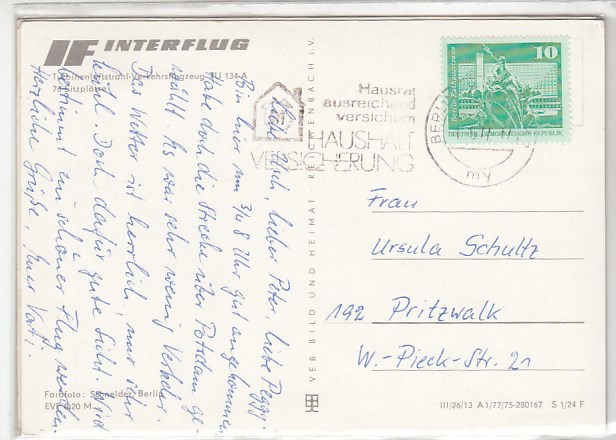 IF INTERFLUG
Turbinenluftstrahl-Verkehrsflugzeug TU 134 A
76 Sitzplätze
lieber Peter, liebe Peggy!
Bin hier um 3/4 8 Uhr gut angekommen
Habe doch die Strecke über Potsdam ge-
wählt. Es war sehr wenig Verkehr.
Das Wetter ist herrlich, nur sehr
Doch dafür gute Sicht. Wird
bestimmt ein schöner Flug werden.
Herzliche Grüße, Euer Vati.
Farbfoto: Schneider, Berlin
EVP 0,20 M
VEB BILD UND HEIMAT REICHENBACH i. V.
Hausrat
ausreichend
versichern
HAUSHALT
VERSICHERUNG
BERLIN
my
10
DEUTSCHE DEMOKRATISCHE REPUBLIK
Frau
Ursula Schultz
192 Pritzwalk
W.-Pieck-Str. 21
III/26/13 A 1/77/75-280167 S 1/24 F